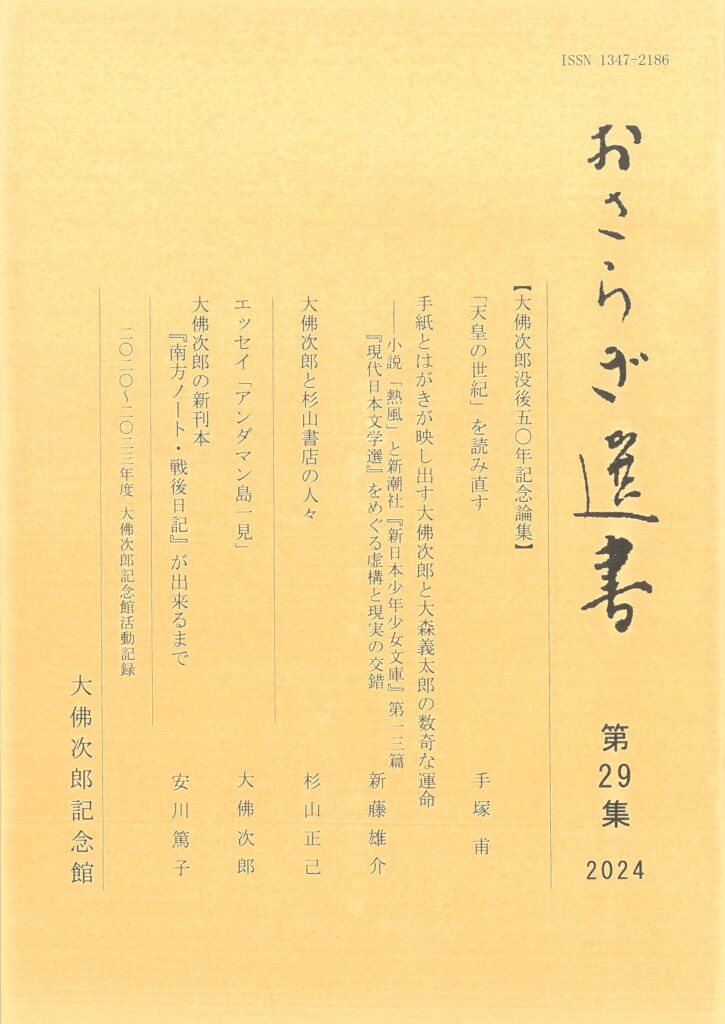 ISSN 1347-2186
おさらぎ選書
第29集
2024
【大佛次郎没後五〇年記念論集】
「天皇の世紀」を読み直す
手塚 甫
手紙とはがきが映し出す大佛次郎と大森義太郎の数奇な運命
――小説「熱風」と新潮社『新日本少年少女文庫』第一三篇
『現代日本文学選』をめぐる虚構と現実の交錯
新藤雄介
大佛次郎と杉山書店の人々
杉山正己
エッセイ「アンダマン島一見」
大佛次郎
大佛次郎の新刊本
『南方ノート・戦後日記』が出来るまで
安川篤子
二〇二〇～二〇二三年度 大佛次郎記念館活動記録
大佛次郎記念館